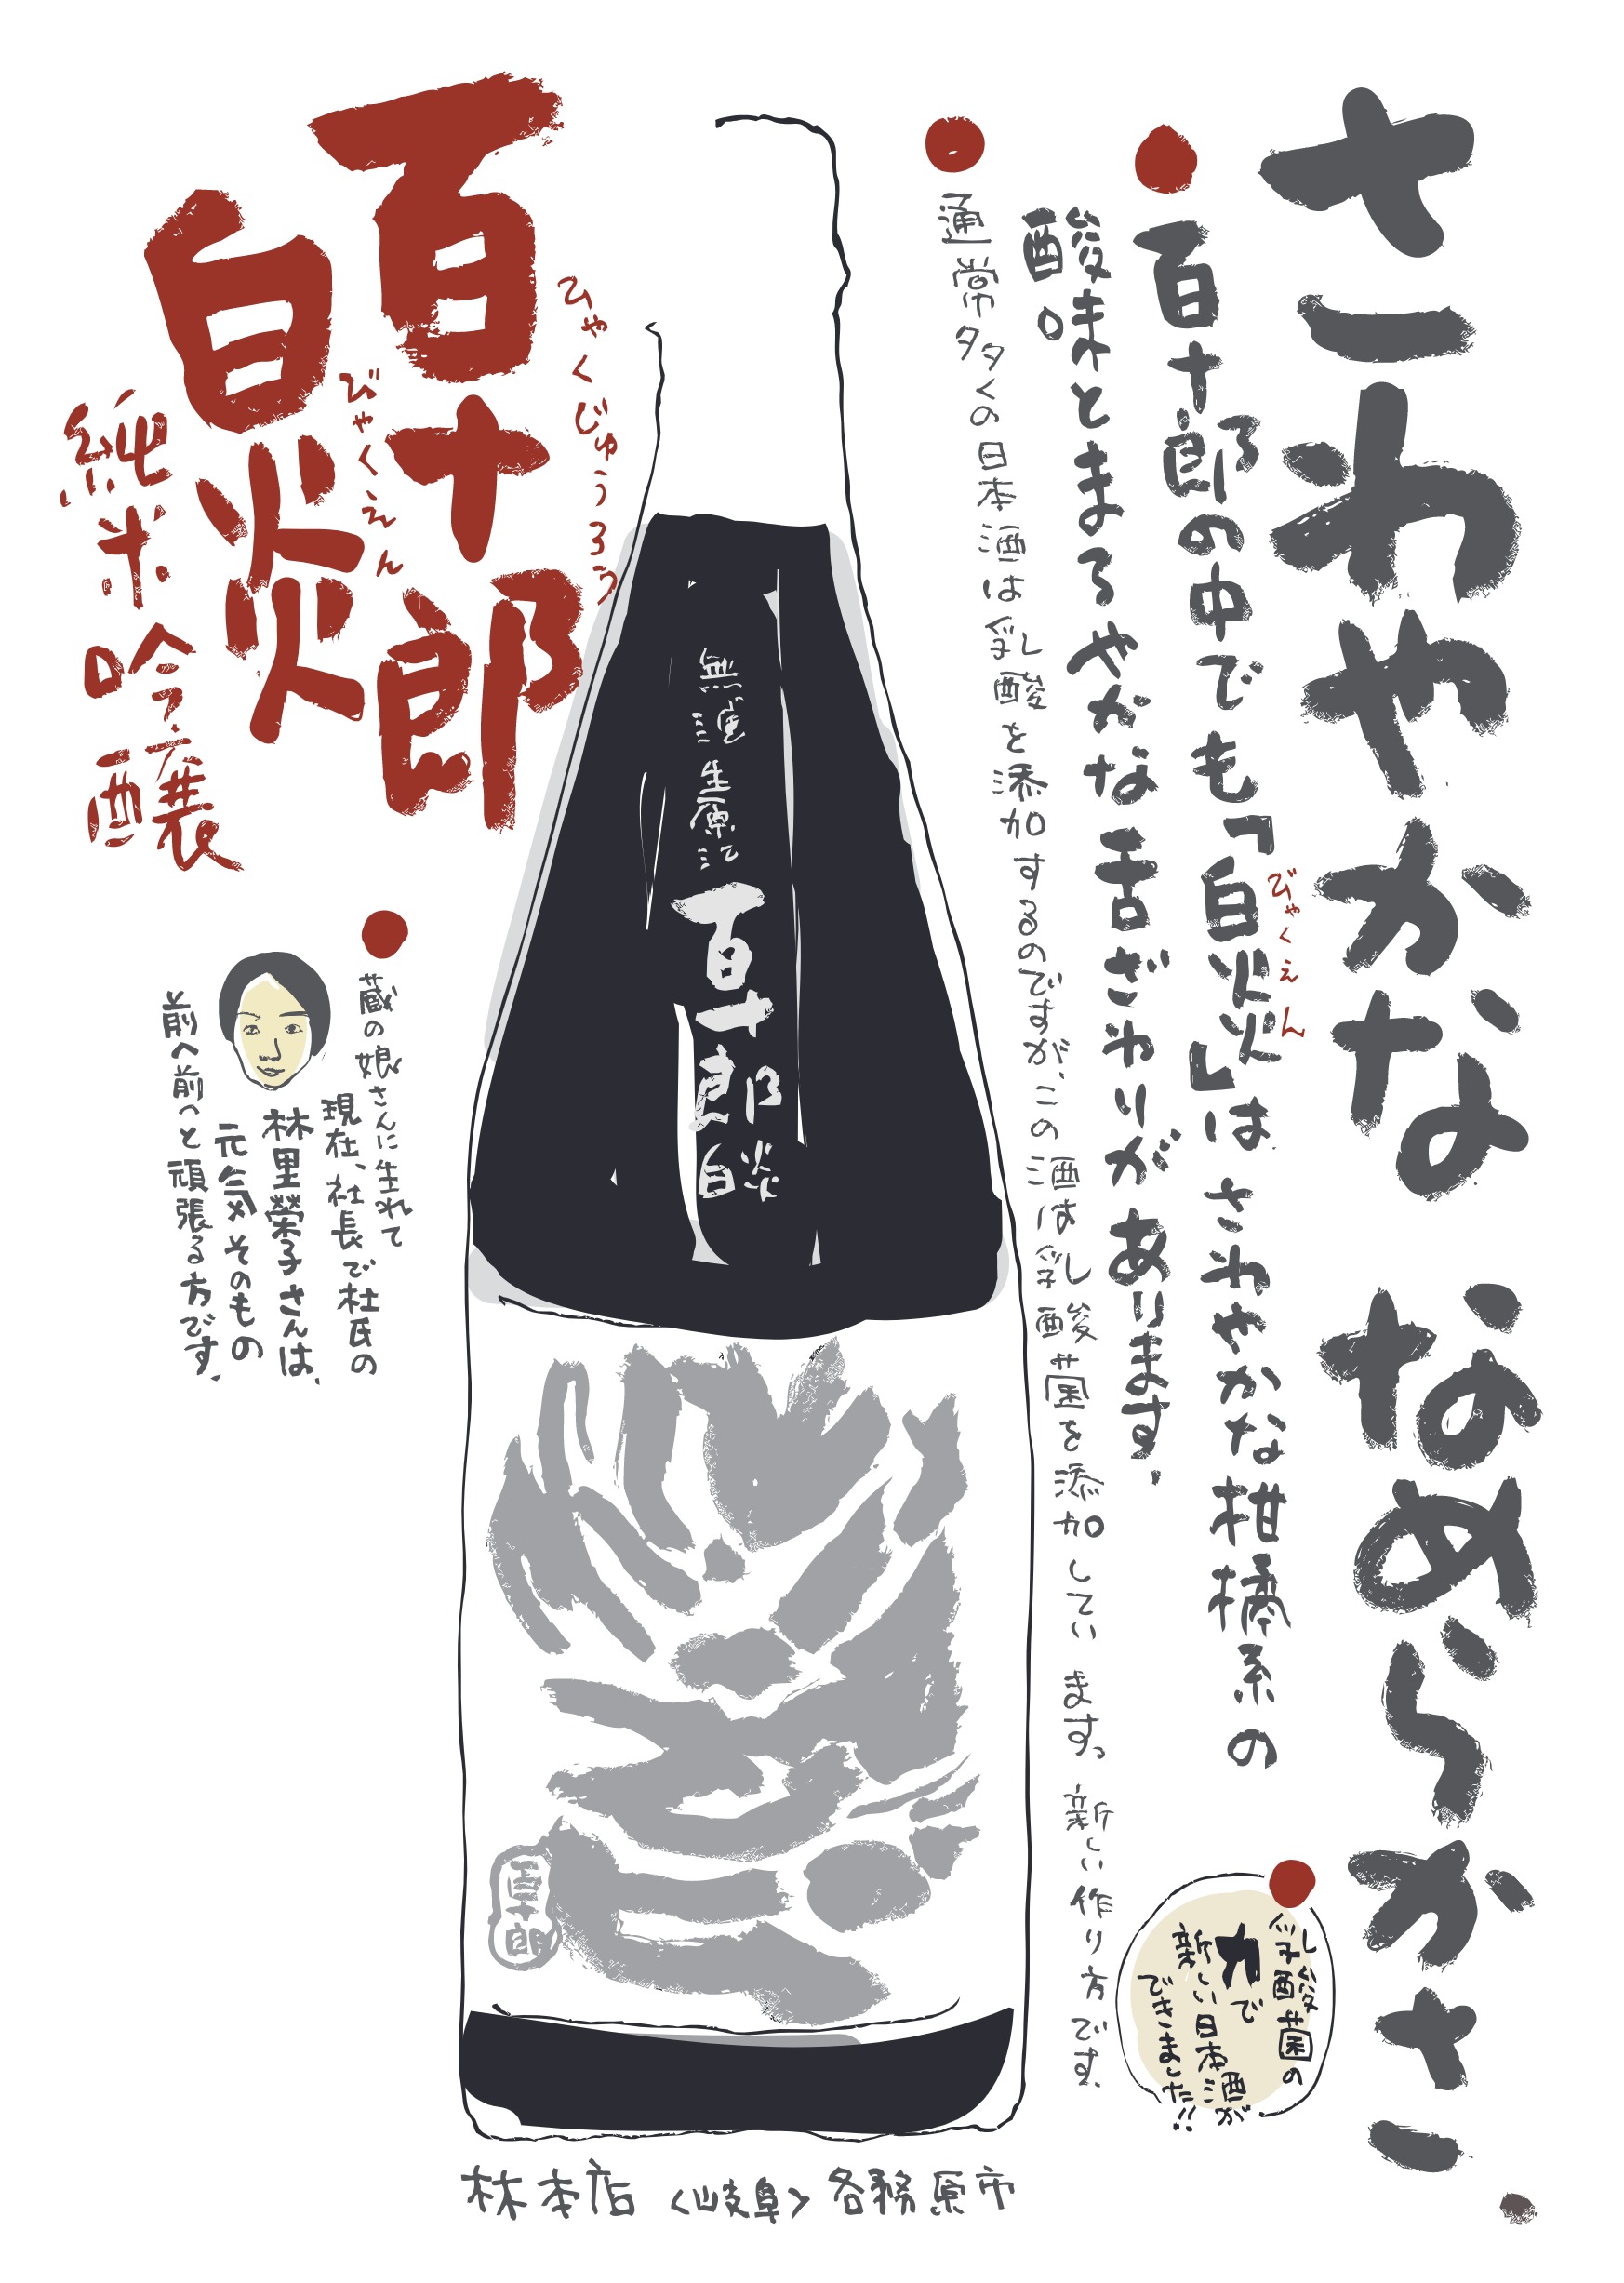 さわやかな なめらかさ.
百十郎の中でも「白炎」は さわやかな柑橘系の
びゃくえん
酸味とまろやかな舌ざわりが あります.
通常多くの日本酒は乳酸を添加するのですが、この酒は乳酸菌を添加してい ます。新しい作り方です.
乳酸菌の
力で
新しい日本酒が
できました!!
無濾過生原酒
百十郎
白炎
百十郎
百十郎
ひゃくじゅうろう
白炎
びゃくえん
純米吟醸
蔵の娘さんに生れて
現在、社長で杜氏の
林里榮子さんは、
元気そのもの
前へ前へと頑張る方です.
林本店 〈岐阜〉 各務原市